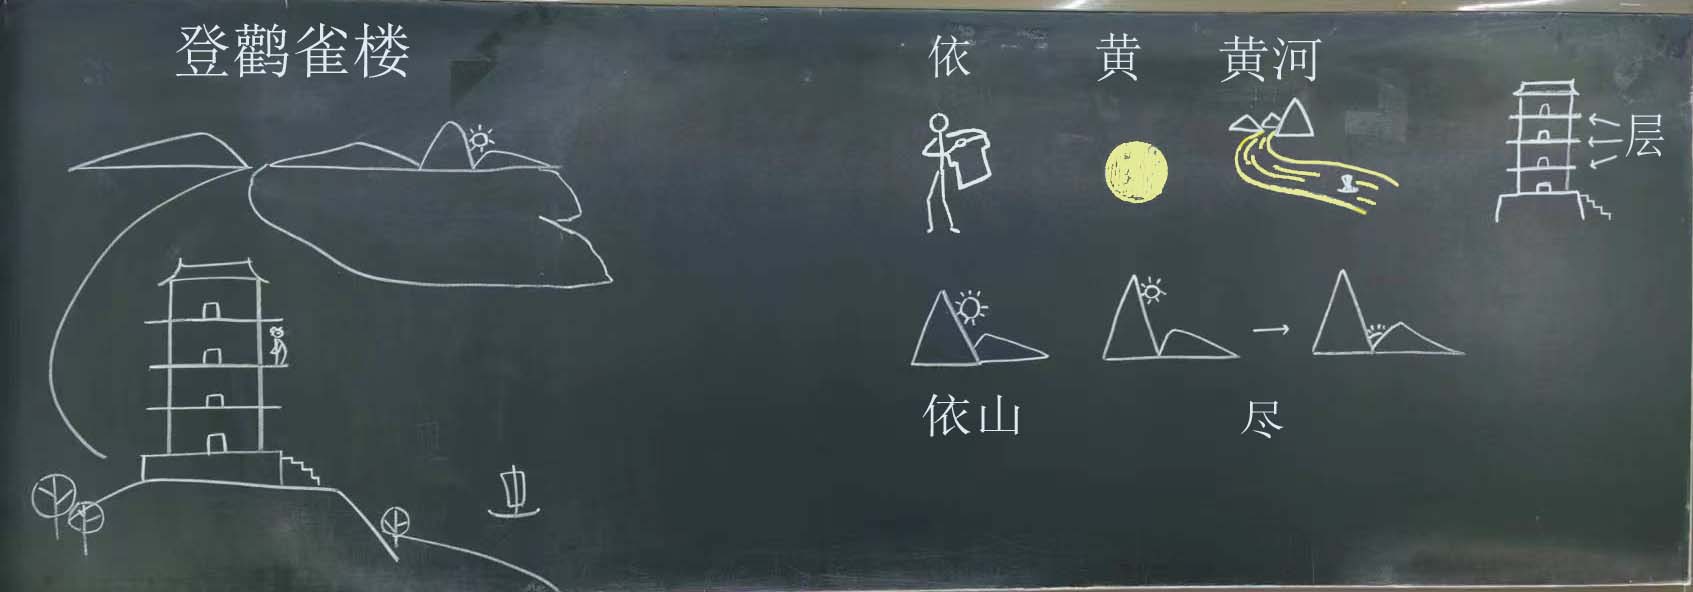 登鹳雀楼
依 黄 黄河
层
依山 尽